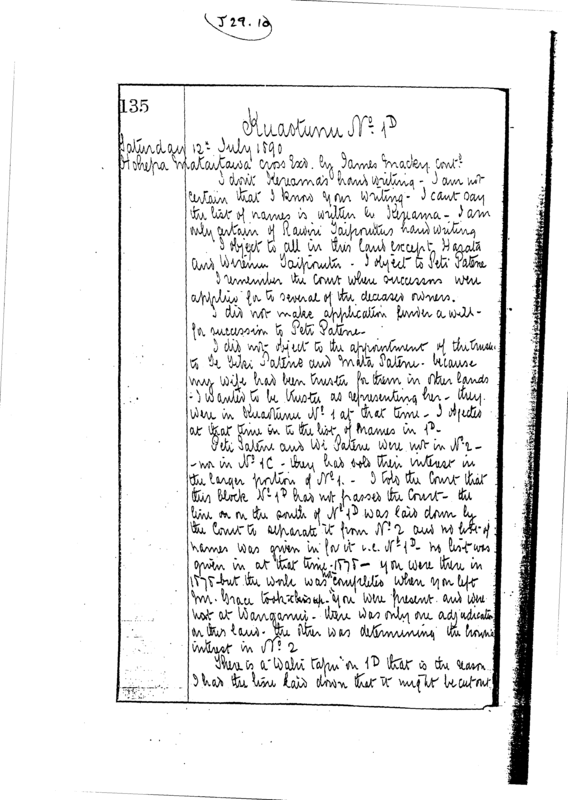 J 29.10
135
Kuaotunu No. 1D
Saturday 12th July 1890
Hohepa Mataitawa cross Exd. by James Mackey contd.
I don't Keepama's handwriting - I am not
certain that I know your writing - I can't say
the list of names is written by - I am
only certain of Rawiri Taiporutu's handwriting
I object to all in this land except Hazata
and Werenia Taiporutu - I object to Peti Patene
I remember the Court where successors were
applied for to several of the deceased owners.
I did not make application under a will -
for succession to Peti Patene -
I did not object to the appointment of the trustee
to Te Tiki Patene and Mata Patene - because
my wife had been trustee for them in other lands
- I wanted to be trustee as representing her - they
were in Kuaotunu No 1 at that time - I objected
at that time to the list of names in 1D -
Peti Patene and Wi Patene were not in No 2 -
- nor in No 1C - they had sold their interest in
the larger portion of No 1. - I told the Court that
this block No 1D had not passed the Court - the
line on on the south of No 1D was laid down by
the Court to separate it from No 2 and no list of
names was given in for it i.e. No 1D - no list was
given in at that time - 1878 - you were there in
1878 but the work was not completed when you left
Mr. Grace took it up - You were present and were
not at Wanganui - there was only one adjudication
on this land - the other was determining the Crown's
interest in No 2
There is a "Wahi tapu" on 1D that is the reason
I had the line laid down that it might be cut out